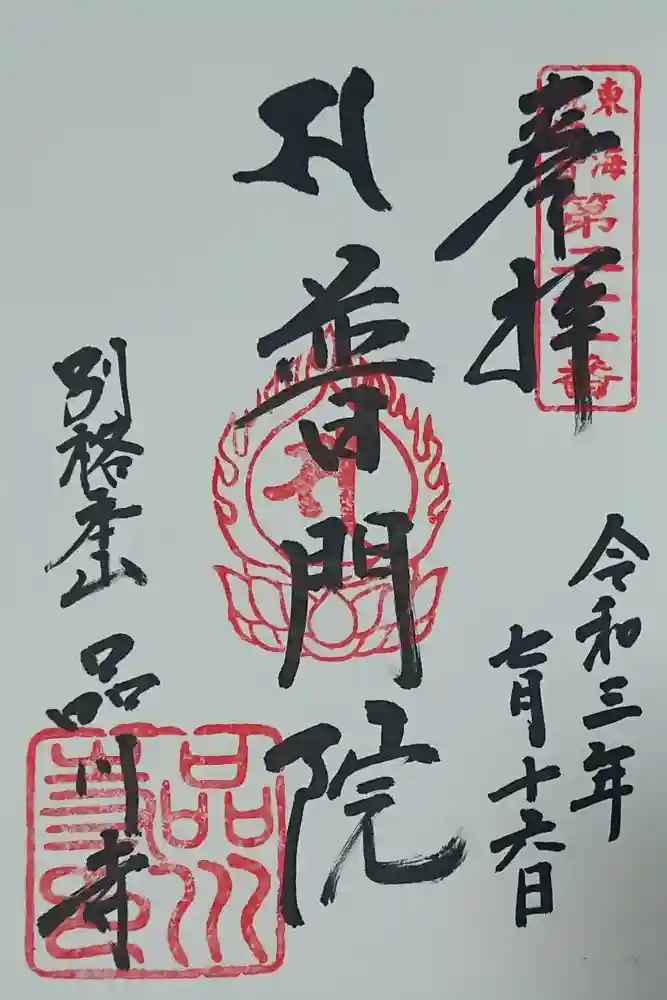 奉拝
東海
第三十一番
令和三年
七月十六日
普門院
別格本山 品川寺
品川寺印